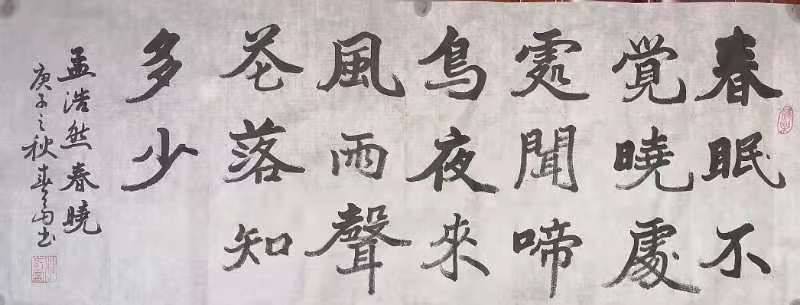 春眠不
覺曉處
處聞啼
鳥夜來
風雨聲
花落知
多少
孟浩然春曉
庚子之秋春书